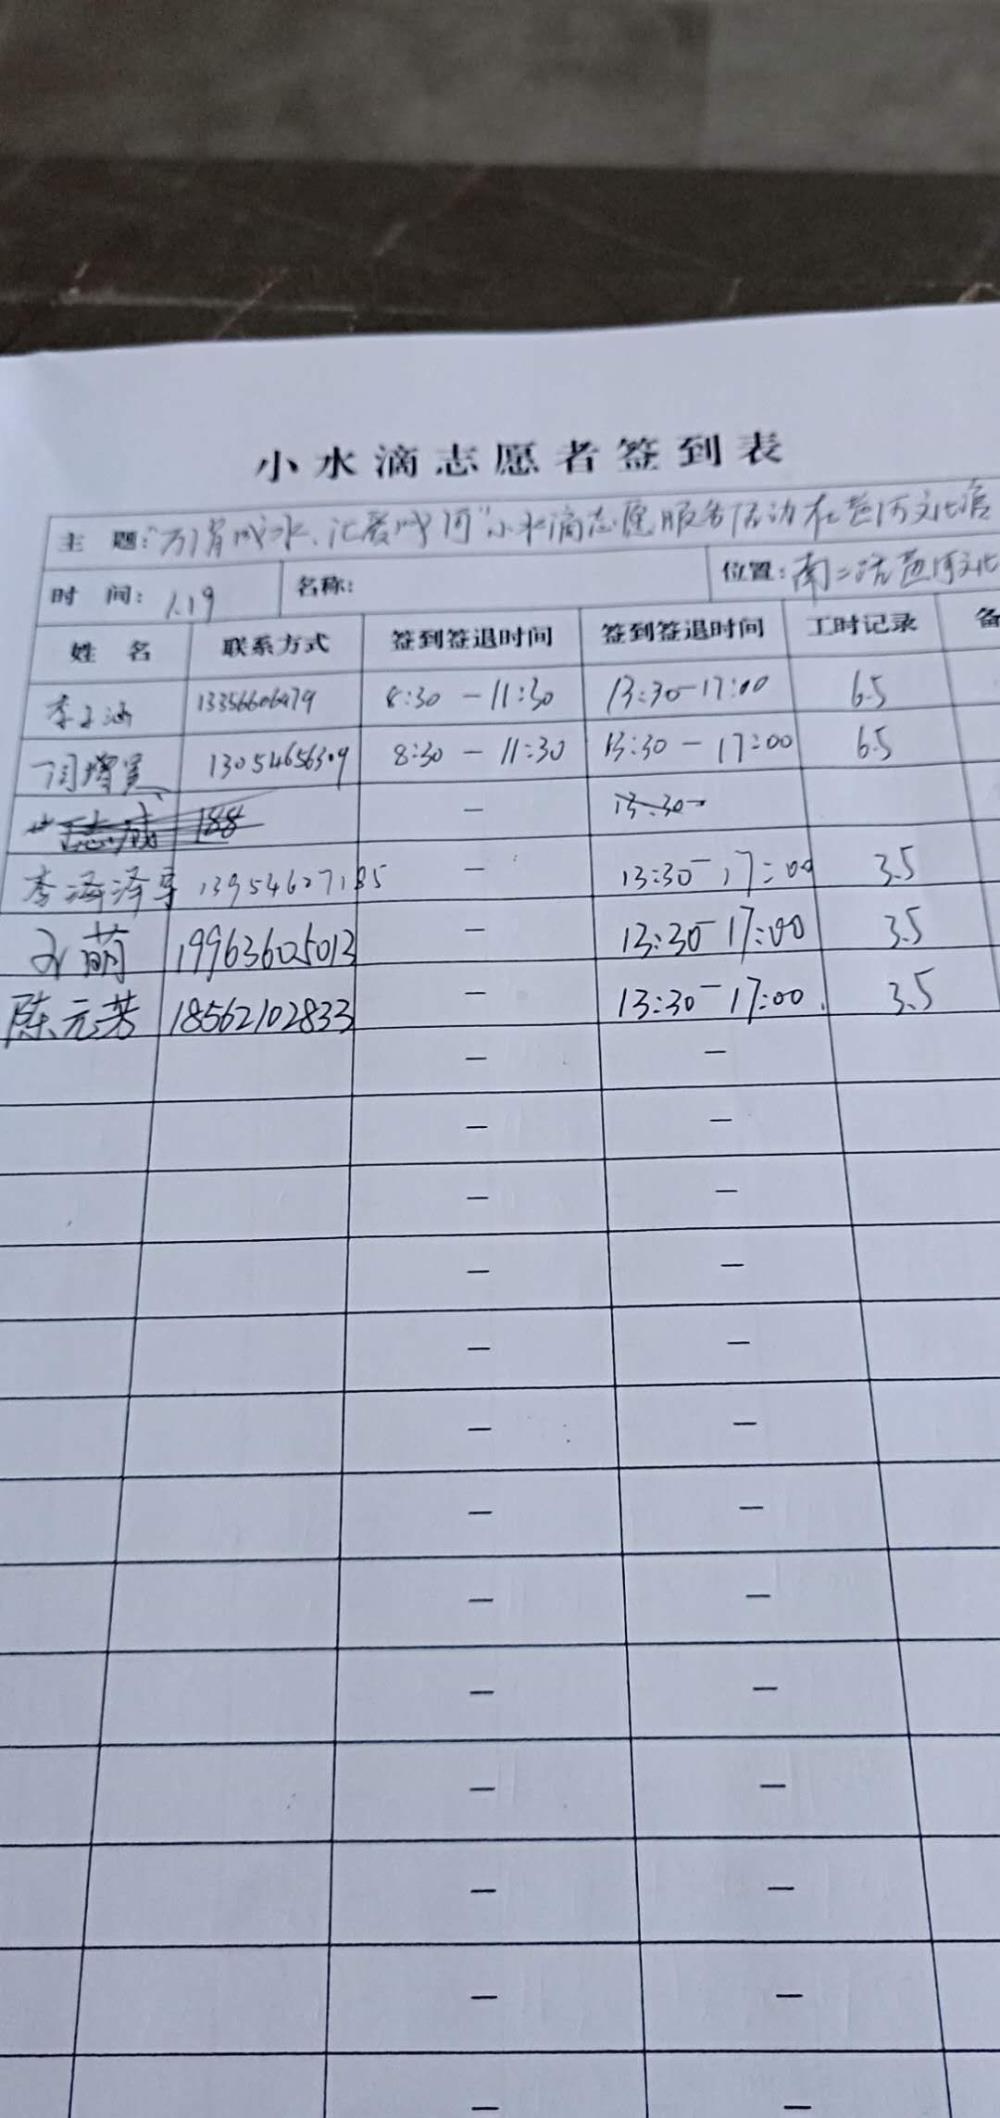 小水滴志愿者签到表
主 题："万涓成水、汇爱成河"小水滴志愿服务活动在黄河文化馆
时 间： 1.19 名称： 位置：南二路黄河文化
姓 名 联系方式 签到签退时间 签到签退时间 工时记录 备
李子涵 8:30 - 11:30 13:30-17:00 6.5
13054656309 8:30 - 11:30 13:30 - 17:00 6.5
188 - 13:30-
李海泽 13954627185 - 13:30-17:00 3.5
萌 19963605013 - 13:30-17:00 3.5
陈元芳 18562102833 - 13:30-17:00 3.5